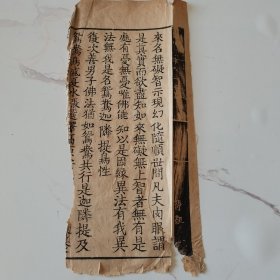 來名無礙智示現幻化隨順世間凡夫肉眼謂
是真實而欲盡知如來無礙無上智者無有是
處有憂無憂唯佛能知以是因緣異法有我異
法無我是名鴛鴦迦隣提鳥性
復次善男子佛法猶如鴛鴦共行是迦隣提及